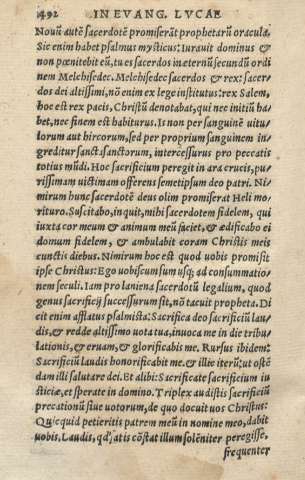 492 IN EVANG. LVCAE
Nouũ autẽ sacerdotẽ promiserãt prophetarũ oracula.
Sic enim habet psalmus mysticus: Iurauit dominus &
non pœnitebit eũ, tu es sacerdos in eternũ secundũ ordi
nem Melchisedec. Melchisedec sacerdos & rex: sacer-
dos dei altissimi, nõ enim ex lege institutus: rex Salem,
hoc est rex pacis, Christũ denotabat, qui nec initiũ ha-
bet, nec finem est habiturus. Is non per sanguinẽ uitu-
lorum aut hircorum, sed per proprium sanguinem in-
greditur sancta sanctorum, intercessurus pro peccatis
totius mũdi. Hoc sacrificium peregit in ara crucis, pu-
rissimam uictimam offerens semetipsum deo patri. Ni-
mirum hunc sacerdotẽ deus olim promiserat Heli mo-
rituro. Suscitabo, inquit, mihi sacerdotem fidelem, qui
iuxta cor meum & animum meũ faciet, & ædificabo ei
domum fidelem, & ambulabit coram Christis meis
cunctis diebus. Nimirum hoc est quod uobis promisit
ipse Christus: Ego uobiscum sum usq; ad consummatio-
nem seculi. Iam pro laniena sacerdotũ legalium, quod
genus sacrificij successurum sit, nõ tacuit propheta. Di
cit enim afflatus psalmista: Sacrifica deo sacrificiũ lau-
dis, & redde altissimo uota tua, inuoca me in die tribu-
lationis, & eruam, & glorificabis me. Rursus ibidem:
Sacrificiũ laudis honorificabit me, & illic iter, ut ostẽ
dam illi salutare dei. Et alibi: Sacrificate sacrificium iu
sticiæ, et sperate in domino. Triplex audistis sacrificiũ
precationũ siue uotorum, de quo docuit uos Christus:
Quicquid petieritis patrem meũ in nomine meo, dabit
uobis. Laudis, qđ satis cõstat illum solẽniter peregisse,
frequenter